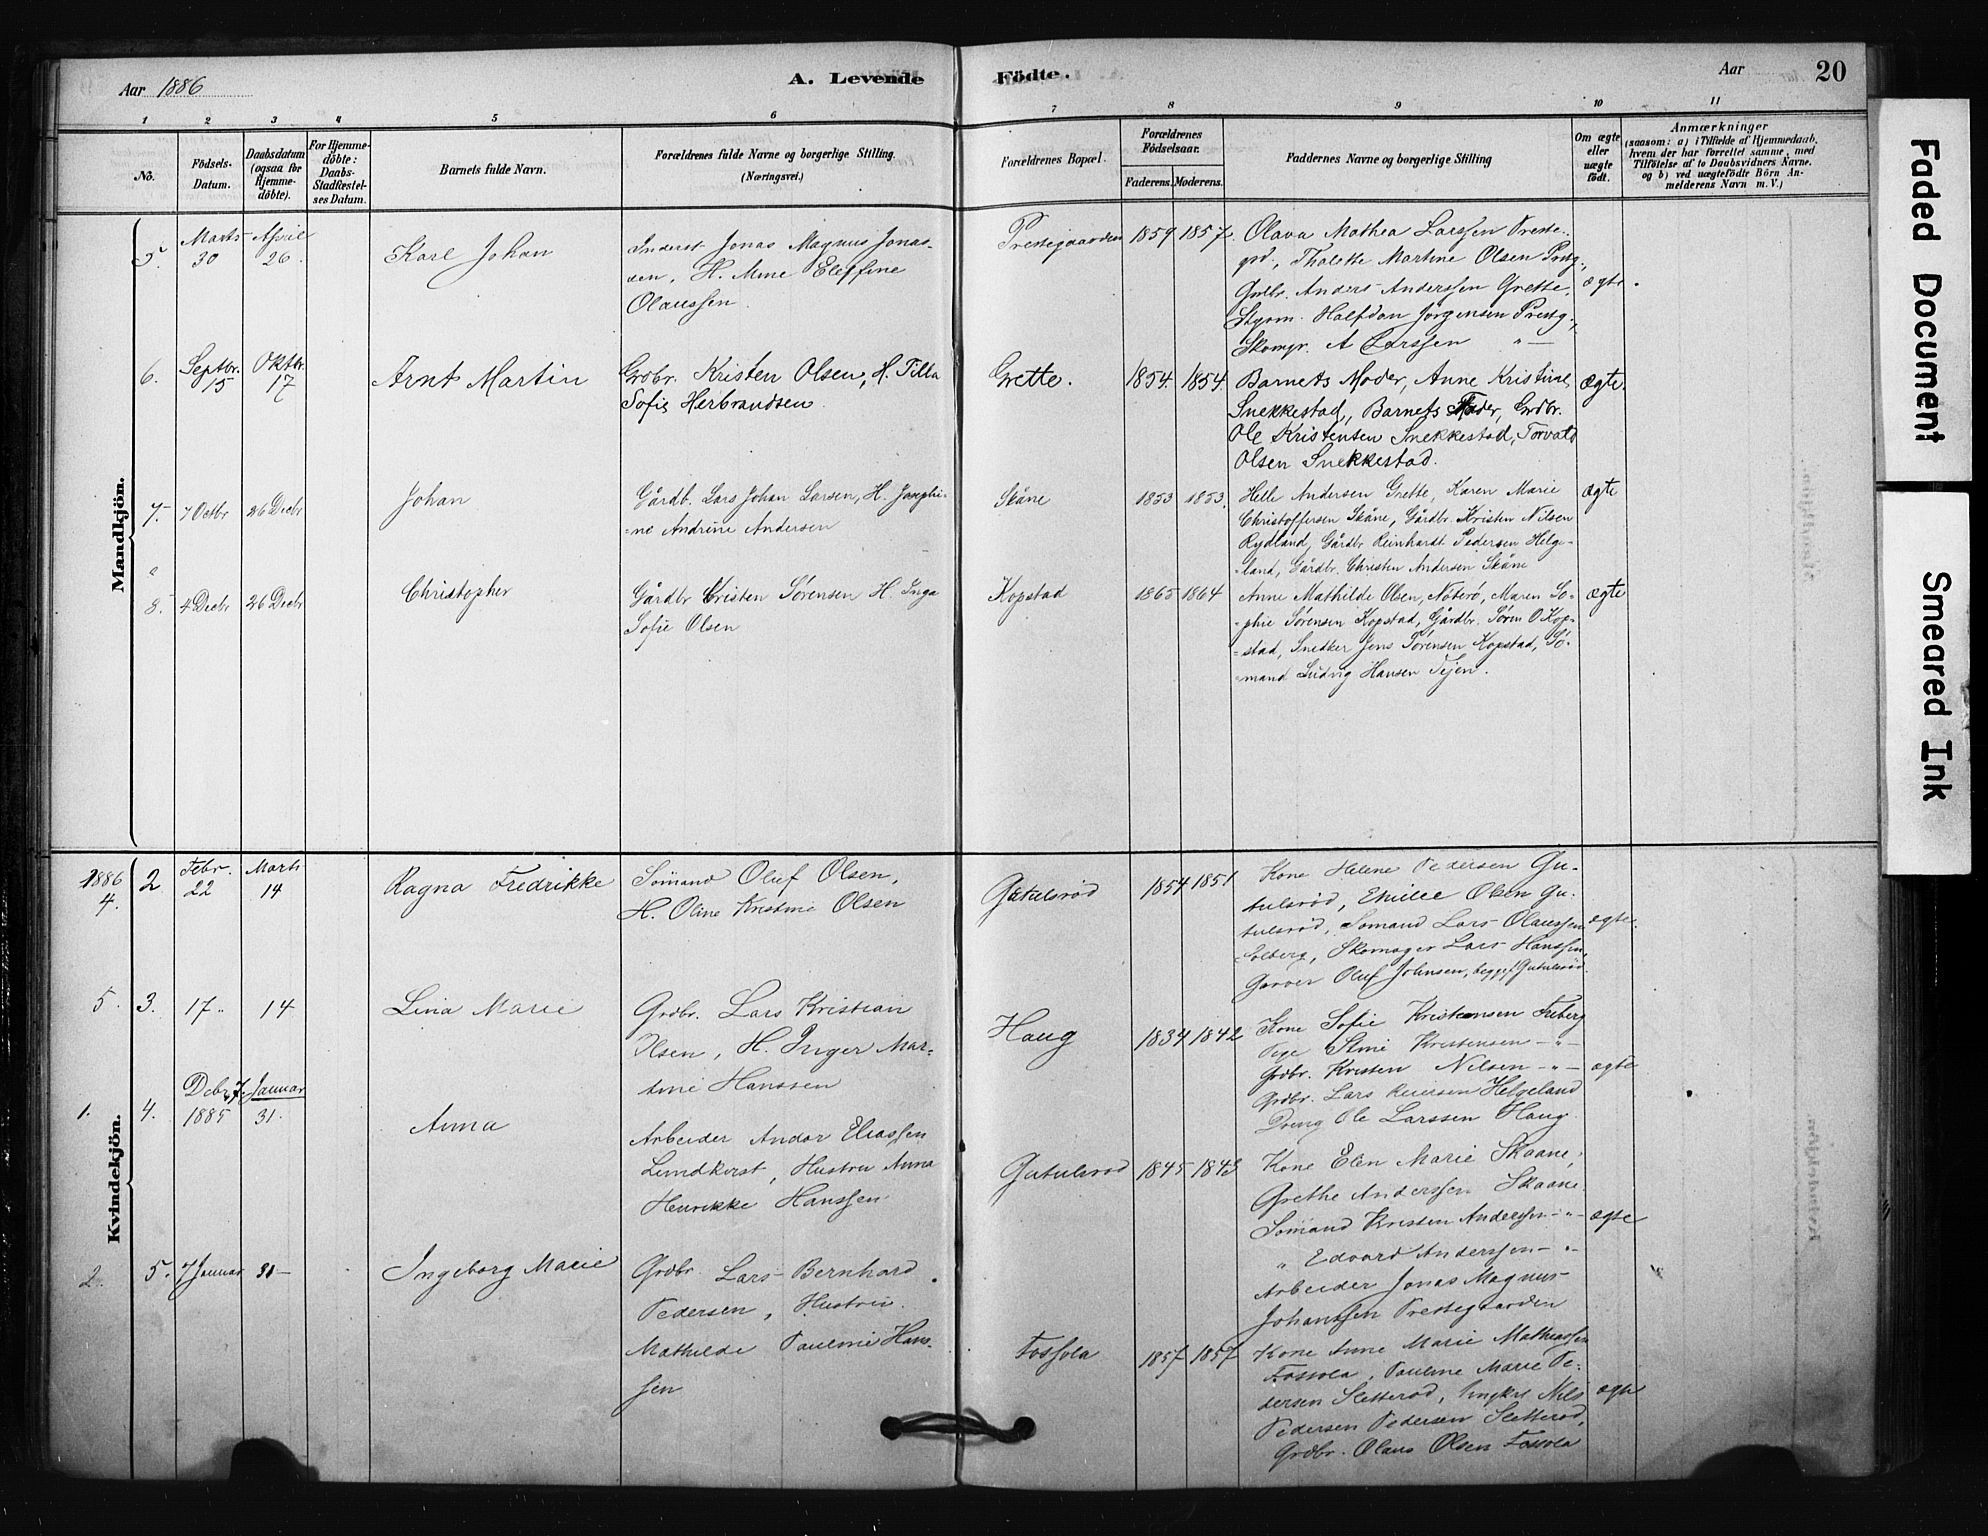 Aar 1886
A. Levende
Födte.
Aar
20
1 2 3 4 5 6 7 8 9 10 11
No.
Födsels-
Datum.
Daabsdatum
(ogsaa for
Hjemme-
döbte).
For Hjemme-
döbte:
Daabs-
Stadfæstel-
ses Datum.
Barnets fulde Navn.
Forældrenes fulde Navne og borgerlige Stilling.
(Næringsvei.)
Forældrenes Bopæl.
Forældrenes
Födselsaar.
Faderens. Moderens.
Faddernes Navne og borgerlige Stilling
Om ægte
eller
uægte
födt.
Anmærkninger
(saasom: a) i Tilfælde af Hjemmedaab,
hvem der har forrettet samme, med
Tilföielse af to Daabsvidners Navne.
og b) ved uægtefödte Börn An-
melderens Navn m. V.)
Mandkjön.
5.
Marts
30
April
26.
Karl Johan
Inderst Jonas Magnus Jonas-
sen, H. Mine
Olaussen
Prestegaarden
1859 1857
Olava Mathea Larssen Preste-
grd., Thalette Martine Olsen Prstg.,
Grdbr. Anders Anderssen Grette,
Styrm. Halfdan Jørgensen Prestg.,
Skomgr. A Larssen "—
ægte.
6.
Septbr.
15
Oktbr.
17
Arnt Martin
Grdbr. Kristen Olsen, H. Tilla
Sofie Herbrandsen.
Grette.
1854. 1854.
Barnets Moder, Anne Kristine
Snekkestad, Barnets Fader, Grdbr.
Ole Kristensen Snekkestad, Torvald
Olsen Snekkestad.
ægte.
7.
7 Octbr
26 Decbr
Johan
Gårdb. Lars Johan Larsen, H. Josephi-
=ne Andrine Andersen
Skåne
1853 1853.
Helle Andersen Grette, Karen Marie
Christoffersen Skåne, Gårdbr. Kristen Nilsen
Rydland, Gårdbr Reinhardt Pedersen Helge-
=land, Gårdbr. Christen Andersen Skåne
ægte
8.
4 Decbr
26 Decbr
Christopher
Gårdbr Cristen Sørensen H. Inga
Sofie Olsen
Kopstad
1865 1864
Anne Mathilde Olsen, Nøterø, Maren So=
=phie Sørensen Kopstad, Gårdbr. Søren O Kop=
=stad, Snedker Jens Sørensen Kopstad, Sø-
=mand Ludvig Hansen Tejen.
ægte
Kvindekjön.
1886
4.
2
Febr.
22
Marts
14
Ragna Fredrikke
Sømand Oluf Olsen,
H. Oline Kristine Olsen
Gutulsrød
1854 1851
Kone Helene Pedersen Gu-
tulsrød, Emilie Olsen Gu-
tulsrød, Sømand Lars Olaussen
Solberg, Skomager Lars Hanssen,
Garver Oluf Johnsen, begge Gutulsrød.
ægte.
5. 3.
17 "
14
Lina Marie
Grdbr. Lars Kristian
Olsen, H. Inger Mar-
tine Hanssen
Haug
1834 1842
Kone Sofie Kristensen Freberg
Pige Stine Kristensen — " —
Grdbr. Kristen Nilsen — " —
Grdbr. Lars Helgeland
Dreng Ole Larssen Haug
ægte
1. 4.
Decbr 7.
1885
Januar
31.
Anna
Arbeider Andor Eliassen
Lundkvist, Hustru Anna
Henrikke Hanssen
Gutulsrød
1845 1843
Kone Elen Marie Skaane,
Grethe Anderssen Skaane
Sømand Kristen Anderssen — " —
" Edvard Anderssen — " —
Arbeider Jonas Magnus
Johanssen Prestegaarden
ægte
2. 5.
7 Januar
31 —
Ingeborg Marie
Grdbr. Lars Bernhard
Pedersen, Hustru
Mathilde Pauline Hans-
sen
Fossola
1857 1857
Kone Anne Marie Mathiassen
Fossola, Pauline Marie Pe-
dersen Sletterød, Nils
Pedersen Pedersen Sletterød,
Grdbr. Olaus Olsen Fossola
ægte
Faded Document
Smeared Ink